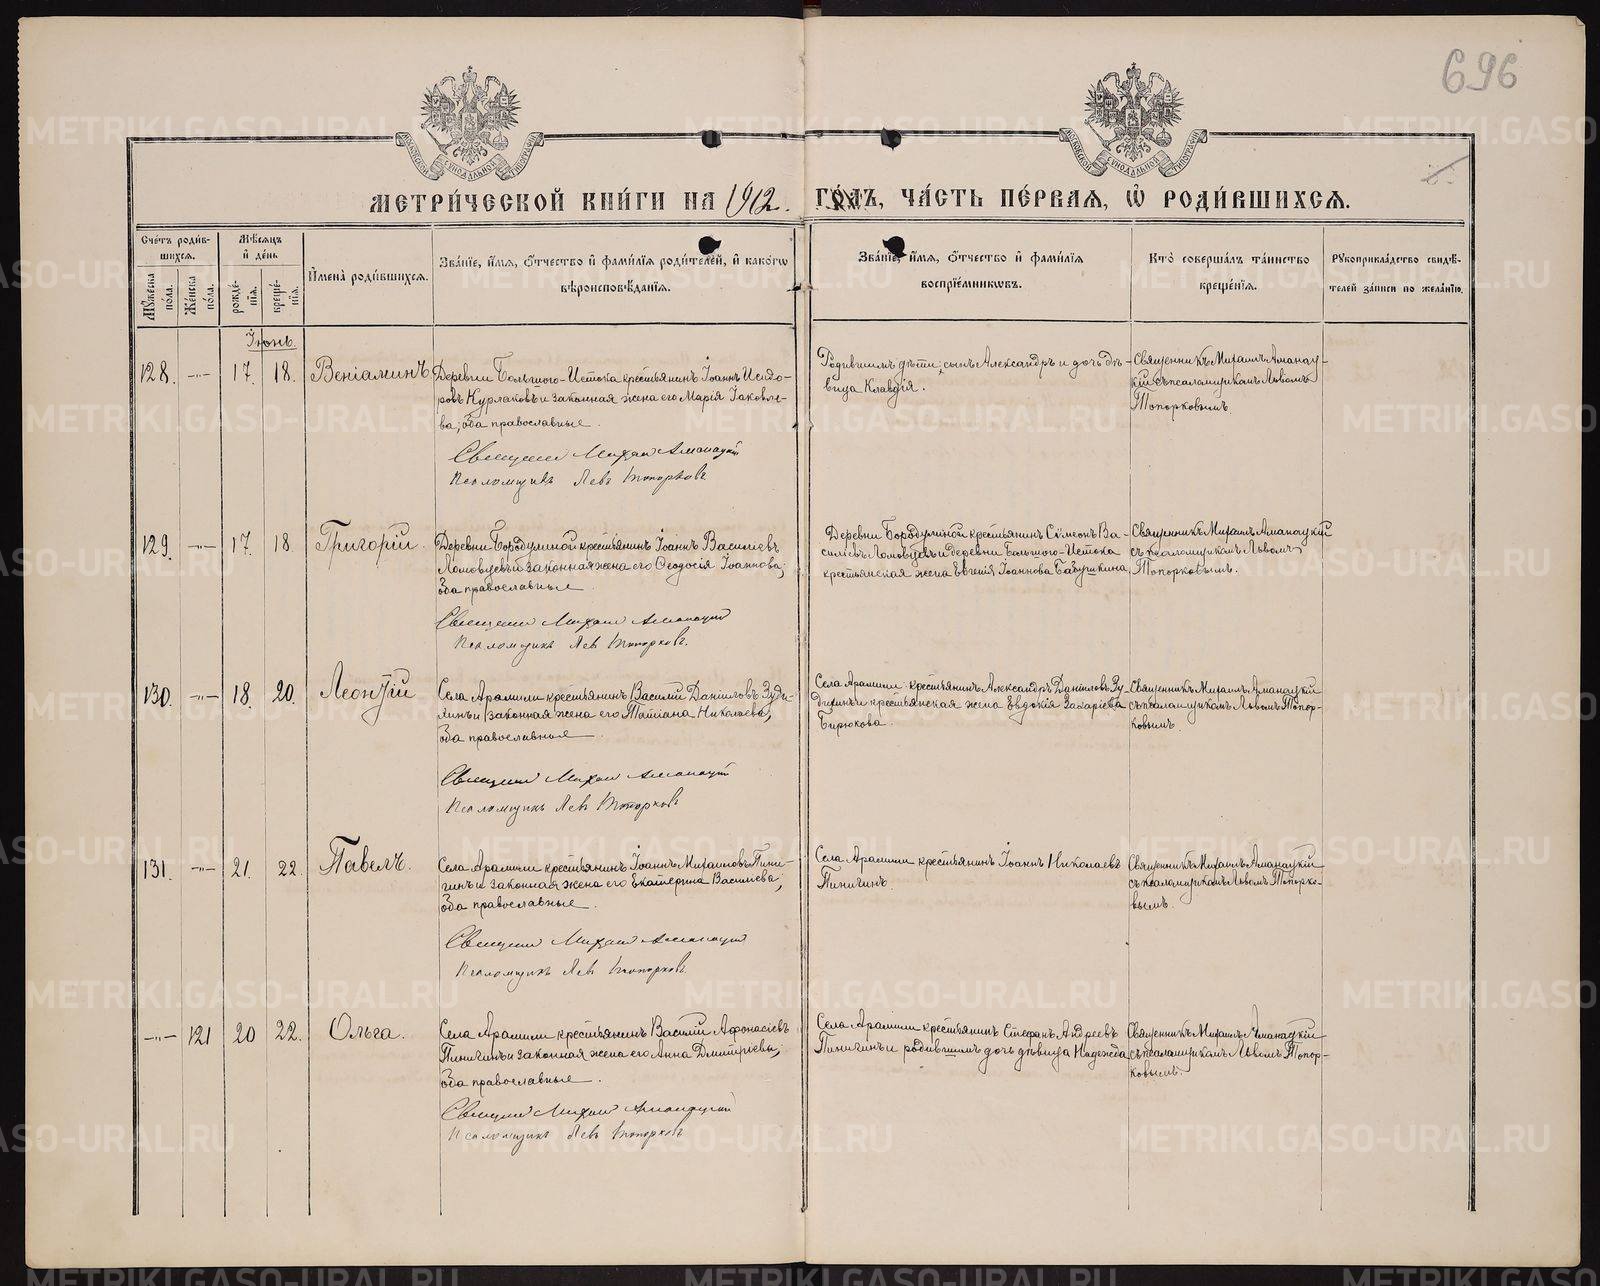 696
МОСКОВСКОЙ СѴНОДАЛЬНОЙ ТИПОГРАФІИ
МОСКОВСКОЙ СѴНОДАЛЬНОЙ ТИПОГРАФІИ
МЕТРИ́ЧЕСКОЙ КНИ́ГИ НА 1912. ГО́ДЪ, ЧА́СТЬ ПЕ́РВАЯ, Ѽ РОДИ́ВШИХСЯ.
Сче́тъ роди́в-
шихся.
Му́жеска по́ла.
Же́нска по́ла.
Мѣ́сяцъ
и҆ де́нь
рожде́-
нїя.
креще́-
нїя.
И҆мена̀ роди́вшихся.
Зва́нїе, и҆́мя, ѻ҆́тчество и҆ фами́лїя роди́телей, и҆ како́гѡ
вѣроисповѣ́данїя.
Зва́нїе, и҆́мя, ѻ҆́тчество и҆ фами́лїя
воспрїе́мникѡвъ.
Кто̀ соверша́лъ та́инство
креще́нїя.
Рꙋкоприкла́дство свидѣ́-
телей за́писи по жела́нїю.
Іюнь.
128. —"— 17. 18. Веніаминъ
Деревни Большого-Истока крестьянинъ Іоаннъ Исидо-
ровъ Курлаковъ и законная жена его Марія Іаковле-
ва; оба православные.
Священникъ Михаил Аманацкій
Псаломщикъ Левъ Топорковъ
Родившимъ дѣти; сынъ Александръ и дочь дѣ-
вица Клавдія.
Священникъ Михаилъ Аманац-
кій съ псаломщикомъ Львомъ
Топорковымъ.
129. —"— 17. 18 Григорій.
Деревни Бородулиной крестьянинъ Іоаннъ Василіевъ
Ломовцевъ и законная жена его Ѳеодосія Іоаннова;
оба православные
Священник Михаил Аманацкій
Псаломщикъ Левъ Топорковъ.
Деревни Бородулиной крестьянинъ Сімеонъ Ва-
силіевъ Ломовцевъ и деревни Большого-Истока
крестьянская жена Евгенія Іоаннова Бабушкина.
Священникъ Михаилъ Аманацкій
съ псаломщикомъ Львомъ
Топорковымъ.
130. —"— 18. 20. Леонтій
Села Арамили крестьянинъ Василій Даніиловъ Зуди-
хинъ и законная жена его Татіана Николаева,
оба православныя
Священник Михаил Аманацкій
Псаломщикъ Левъ Топорковъ
Села Арамили крестьянинъ Александръ Даніиловъ Зу-
дихинъ и крестьянская жена Евдокія Захаріева
Бирюкова.
Священникъ Михаилъ Аманацкій
съ псаломщикомъ Львомъ Топор-
ковымъ.
131. —"— 21. 22. Павелъ.
Села Арамили крестьянинъ Іоаннъ Михаиловъ Пини-
гинъ и законная жена его Екатерина Василіева;
оба православные.
Священник Михаил Аманацкій
Псаломщикъ Левъ Топорковъ.
Села Арамили крестьянинъ Іоаннъ Николаевъ
Пинигинъ.
Священникъ Михаилъ Аманацкій
съ псаломщикомъ Львомъ Топорко-
вымъ.
—"— 121 20 22. Ольга.
Села Арамили крестьянинъ Василій Аѳонасіевъ
Пинигинъ и законная жена его Анна Дмитріева;
оба православные.
Священник Михаил Аманацкій
Псаломщикъ Левъ Топорковъ
Села Арамили крестьянинъ Стефанъ Андреевъ
Пинигинъ и родившимъ дочь дѣвица Надежда.
Священникъ Михаилъ Аманацкій
съ псаломщикомъ Львомъ Топор-
ковымъ.
METRIKI.GASO-URAL.RU